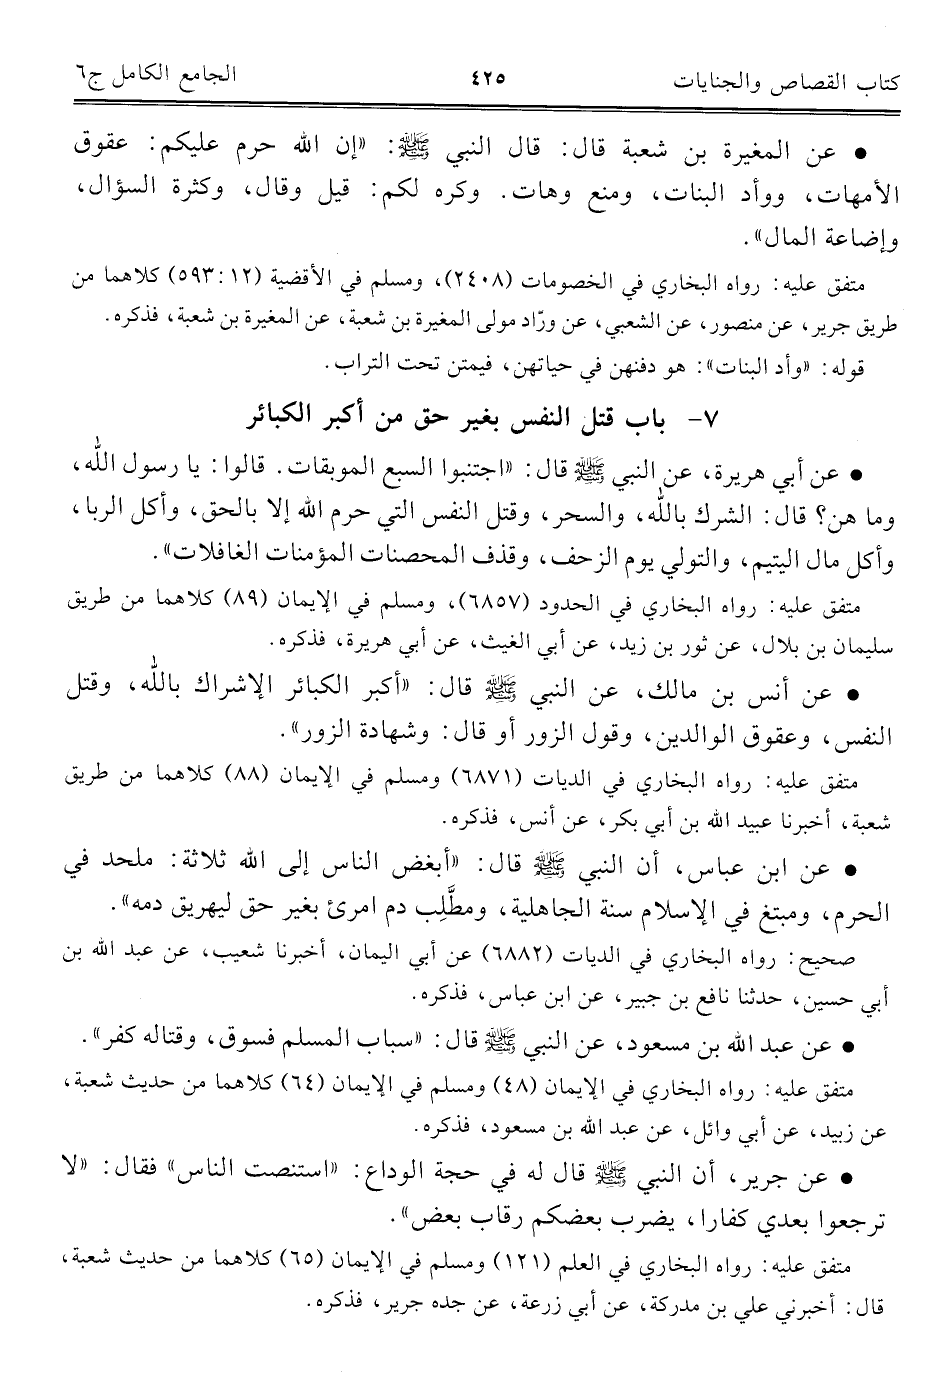 كتاب القصاص والجنايات ٤٢٥ الجامع الكامل ج٦
● عن المغيرة بن شعبة قال: قال النبي ﷺ: «إن الله حرم عليكم: عقوق
الأمهات، ووأد البنات، ومنع وهات. وكره لكم: قيل وقال، وكثرة السؤال،
وإضاعة المال».
متفق عليه: رواه البخاري في الخصومات (٢٤٠٨)، ومسلم في الأقضية (٥٩٣:١٢) كلاهما من
طريق جرير، عن منصور، عن الشعبي، عن ورّاد مولى المغيرة بن شعبة، عن المغيرة بن شعبة، فذكره.
قوله: «وأد البنات»: هو دفنهن في حياتهن، فيمتن تحت التراب.
٧- باب قتل النفس بغير حق من أكبر الكبائر
● عن أبي هريرة، عن النبي ﷺ قال: «اجتنبوا السبع الموبقات. قالوا: يا رسول الله،
وما هن؟ قال: الشرك بالله، والسحر، وقتل النفس التي حرم الله إلا بالحق، وأكل الربا،
وأكل مال اليتيم، والتولي يوم الزحف، وقذف المحصنات المؤمنات الغافلات».
متفق عليه: رواه البخاري في الحدود (٦٨٥٧)، ومسلم في الإيمان (٨٩) كلاهما من طريق
سليمان بن بلال، عن ثور بن زيد، عن أبي الغيث، عن أبي هريرة، فذكره.
● عن أنس بن مالك، عن النبي ﷺ قال: «أكبر الكبائر الإشراك بالله، وقتل
النفس، وعقوق الوالدين، وقول الزور أو قال: وشهادة الزور».
متفق عليه: رواه البخاري في الديات (٦٨٧١) ومسلم في الإيمان (٨٨) كلاهما من طريق
شعبة، أخبرنا عبيد الله بن أبي بكر، عن أنس، فذكره.
● عن ابن عباس، أن النبي ﷺ قال: «أبغض الناس إلى الله ثلاثة: ملحد في
الحرم، ومبتغ في الإسلام سنة الجاهلية، ومطَّلِب دم امرئ بغير حق ليهريق دمه».
صحيح: رواه البخاري في الديات (٦٨٨٢) عن أبي اليمان، أخبرنا شعيب، عن عبد الله بن
أبي حسين، حدثنا نافع بن جبير، عن ابن عباس، فذكره.
● عن عبد الله بن مسعود، عن النبي ﷺ قال: «سباب المسلم فسوق، وقتاله كفر».
متفق عليه: رواه البخاري في الإيمان (٤٨) ومسلم في الإيمان (٦٤) كلاهما من حديث شعبة،
عن زبيد، عن أبي وائل، عن عبد الله بن مسعود، فذكره.
● عن جرير، أن النبي ﷺ قال له في حجة الوداع: «استنصت الناس» فقال: «لا
ترجعوا بعدي كفارا، يضرب بعضكم رقاب بعض».
متفق عليه: رواه البخاري في العلم (١٢١) ومسلم في الإيمان (٦٥) كلاهما من حديث شعبة،
قال: أخبرني علي بن مدركة، عن أبي زرعة، عن جده جرير، فذكره.